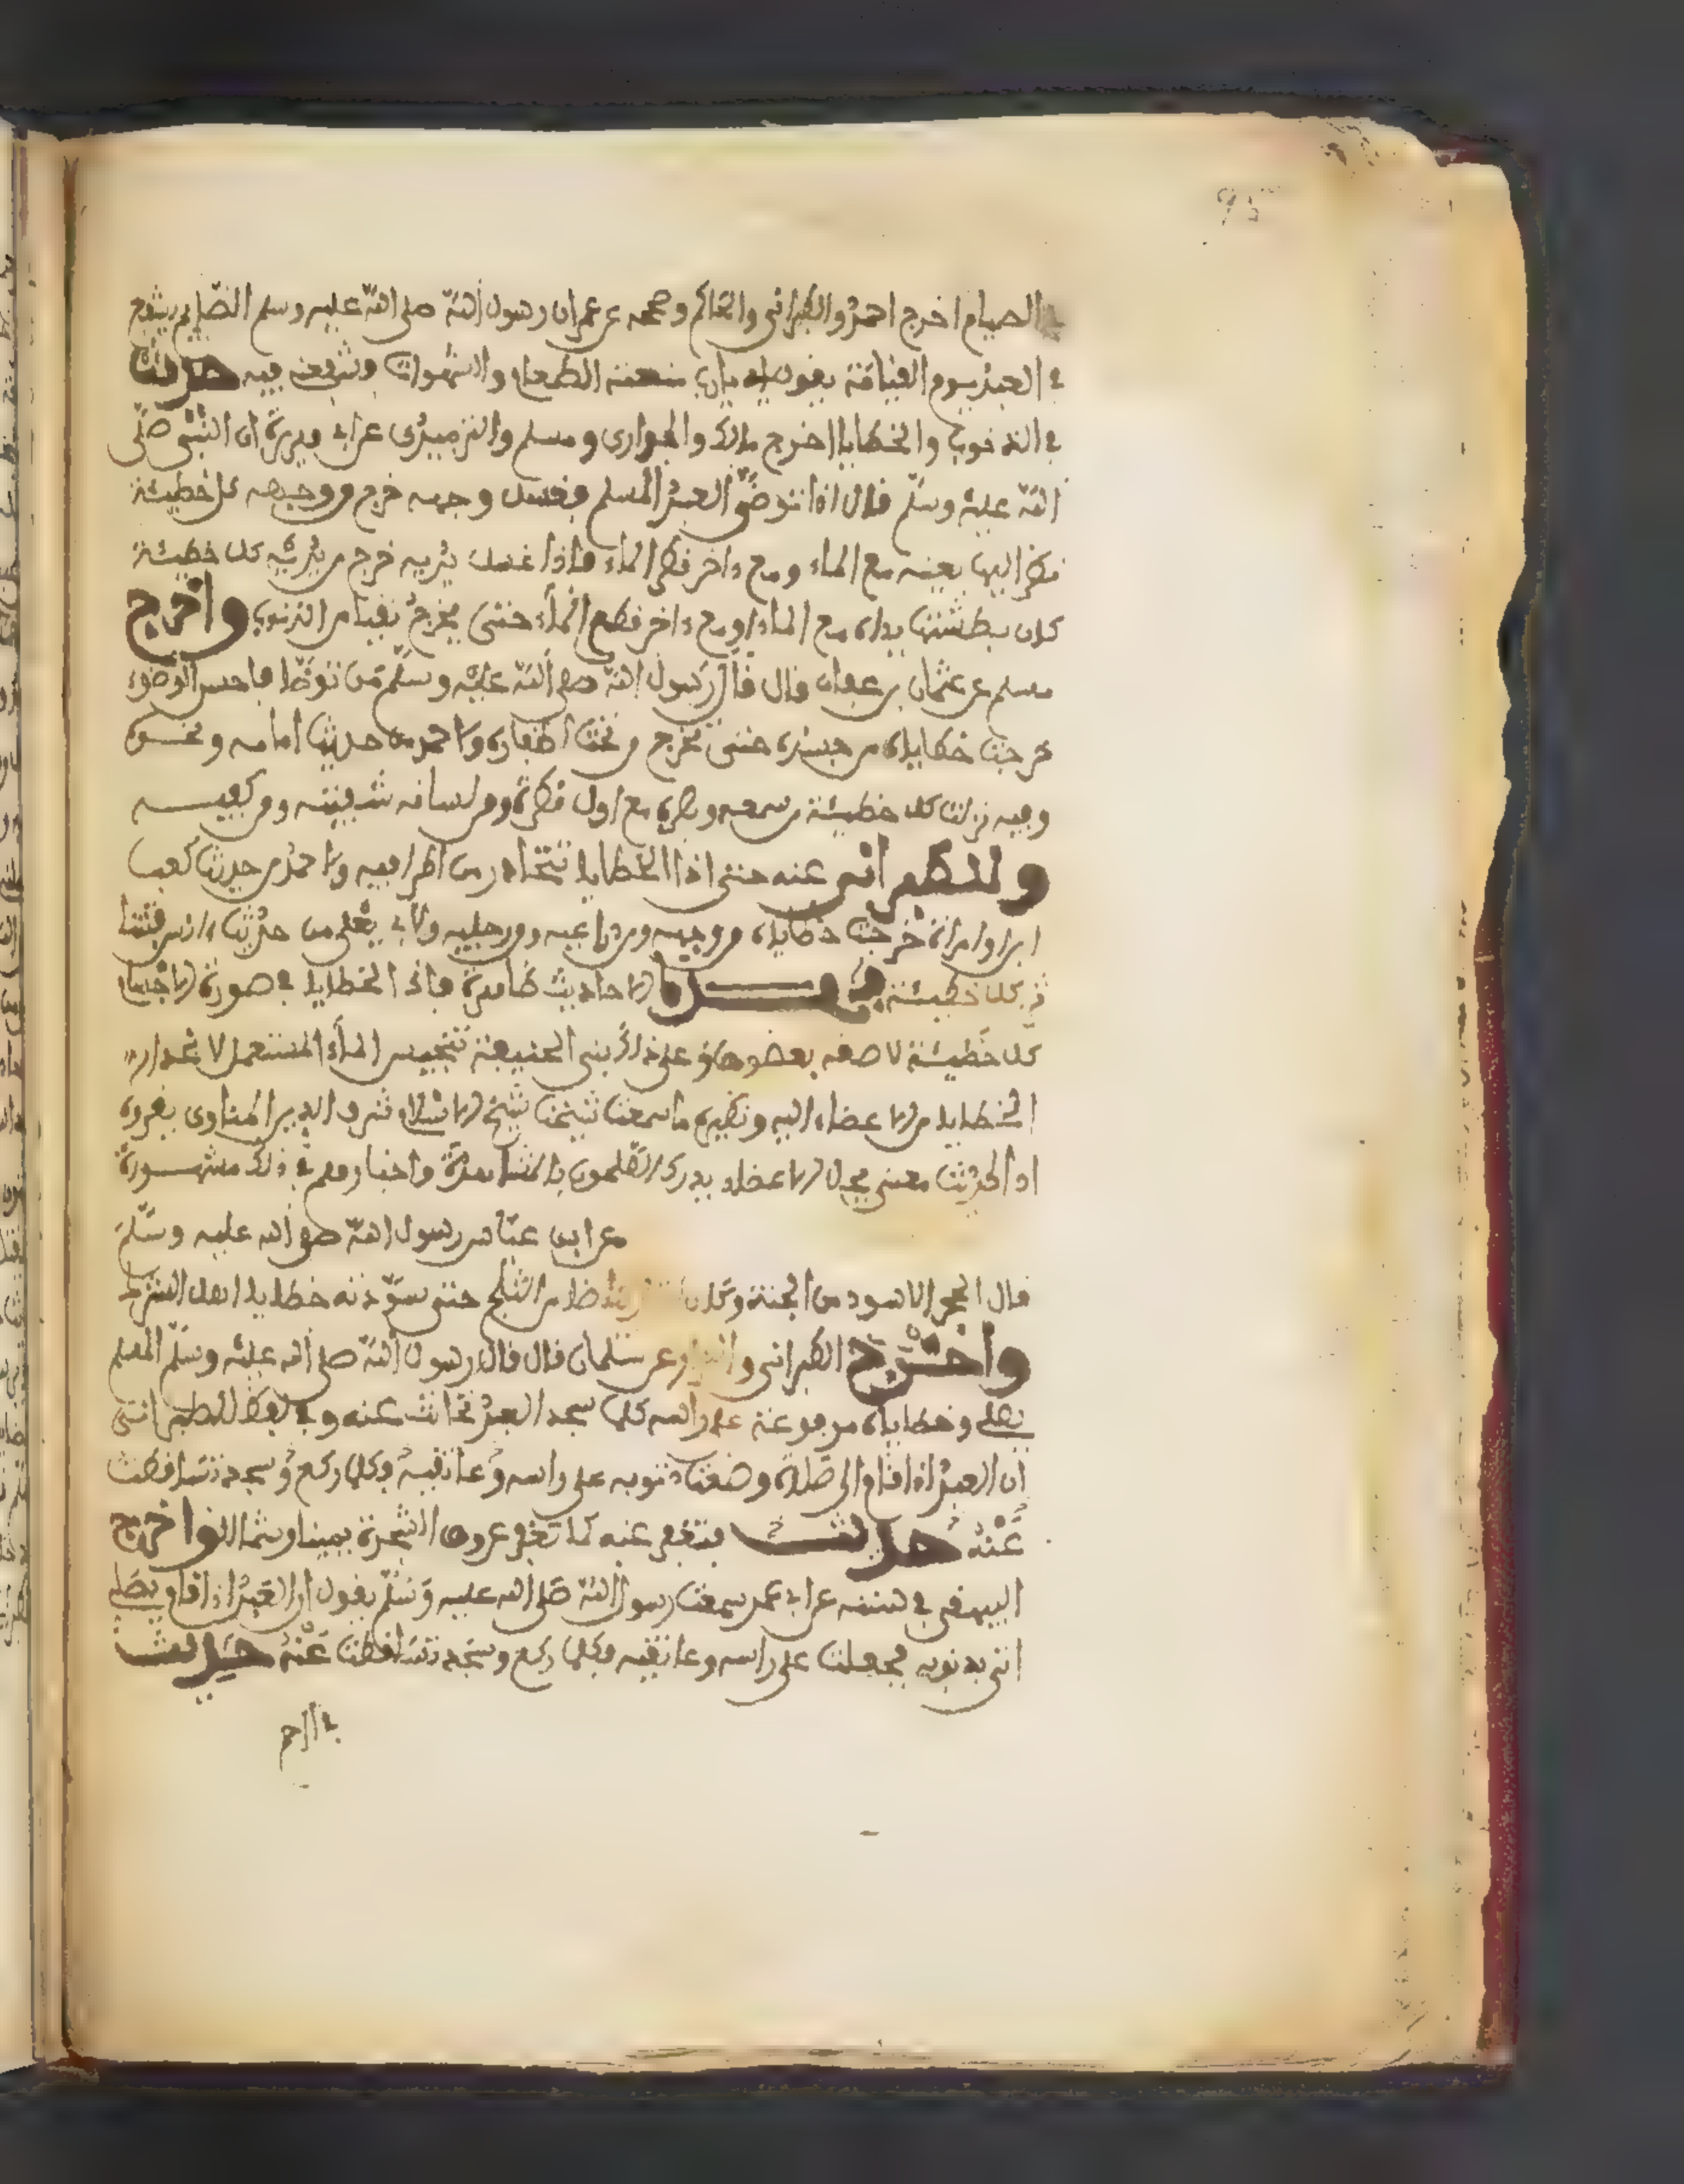 في الصيام اخرج احمد والطبراني والحاكم وصححه عن عمر ان رسول الله صلى الله عليه وسلم الصيام يشفع
في العبد يوم القيامة يقول يارب منعته الطعام والشهوات وشفعني فيه حديث
في الذنوب والخطايا اخرج مالك والبخاري ومسلم والترميذي عن ابي هريرة ان النبي صلى
الله عليه وسلم قال اذا توضى العبد المسلم فغسل وجهه خرج من وجهه كل خطيئة
نظر اليها بعينه مع الماء ومع ءاخر قطر الماء فاذا غسل يديه خرج من يديه كل خطيئة
كان بطشتها يداه مع الماء او مع ءاخر قطر الماء حتى يخرج نقيا من الذنوب واخرج
مسلم عن عثمان بن عفان قال قال رسول الله صلى الله عليه وسلم من توضا فاحسن الوضوء
خرجت خطاياه من جسده حتى تخرج من تحت اظفاره ولاحمد من حديث امامه ونحوه
وفيه نزلت كل خطيئة من سمعه وبصره مع اول قطرة ومن لسانه شفتيه ومن كفيه
وللطبراني عنه حتى اذا الخطايا تتحادر من اطرافه ولاحمد من حديث كعب
ابن امراة خرجت خطاياه من وجهه ومن ذراعيه ومن رجليه ولابي يعلى من حديث انس
كل خطيئة الاحاديث ظاهرة فان الخطايا في صورة الاجسام
كل خطيئة لاصقه بعضوها وعلى ذلك بنى الحنيفة تنجيس الماء المستعمل لانحدار
الخطايا من الاعضاء اليه ونظيره ما سمعت شيخنا شيخ الاسلام شرف الدين المناوي يقرره
ان الحديث معنى يحل الاعضاء يدركه بالمشاهدة واخبارهم في ذلك مشهورة
عن ابن عباس رسول الله صلى الله عليه وسلم
قال الحجر الاسود من الجنة وكان بياضا من الثلج حتى سودته خطايا اهل الشرك
واخرج الطبراني والبزار عن سلمان قال قال رسول الله صلى الله عليه وسلم المسلم
يصلي وخطاياه مرفوعة على راسه كلما سجد العبد تحاتت عنه وفي لفظ للطبراني
ان العبد اذا قام الى صلاة وضعت ذنوبه على راسه وعاتقيه فكلما ركع وسجد تساقطت
عنه حديث فتفرق عنه كما تفرق عروق الشجرة يمينا وشمالا واخرج
البيهقي في سننه عن ابي عمر سمعت رسول الله صلى الله عليه وسلم يقول ان العبد اذا قام يصلي
اتي بذنوبه فجعلت على راسه وعاتقيه فكلما ركع وسجد تساقطت عنه حديث